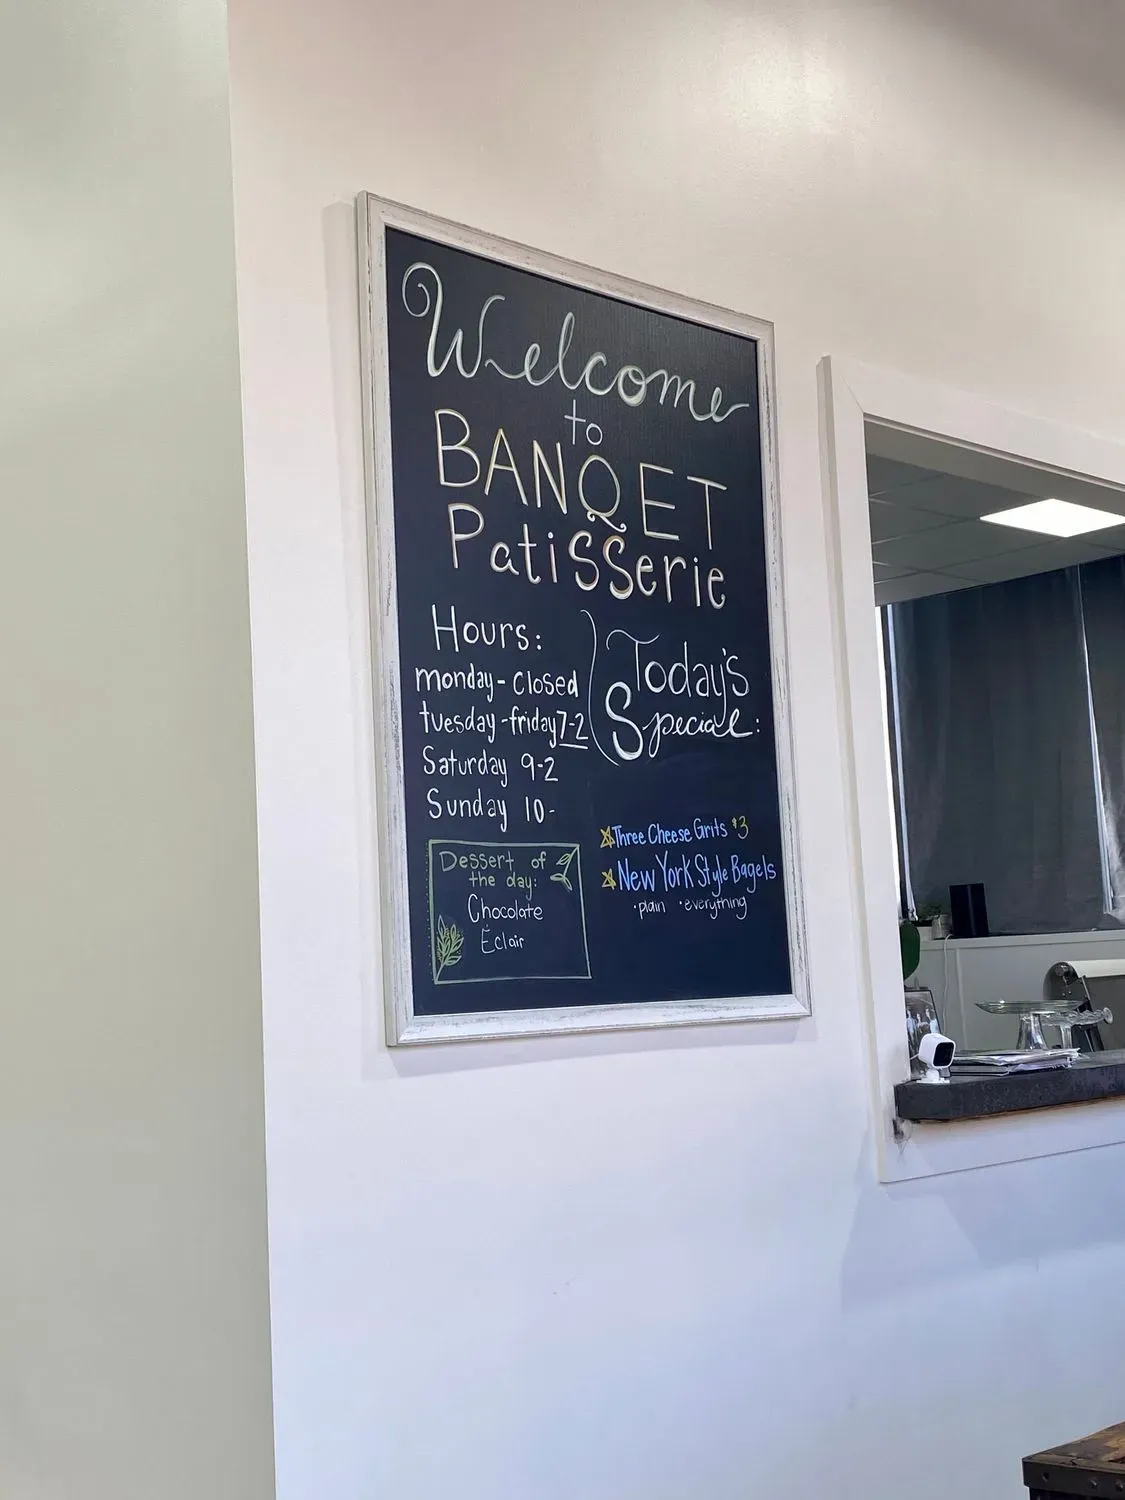 Welcome
to
BANQET
Patisserie
Hours:
monday - closed
tuesday - friday 7-2
Saturday 9-2
Sunday 10-
Today's
Special:
Three Cheese Grits $3
New York Style Bagels
· plain · everything
Dessert of
the day:
Chocolate
Éclair